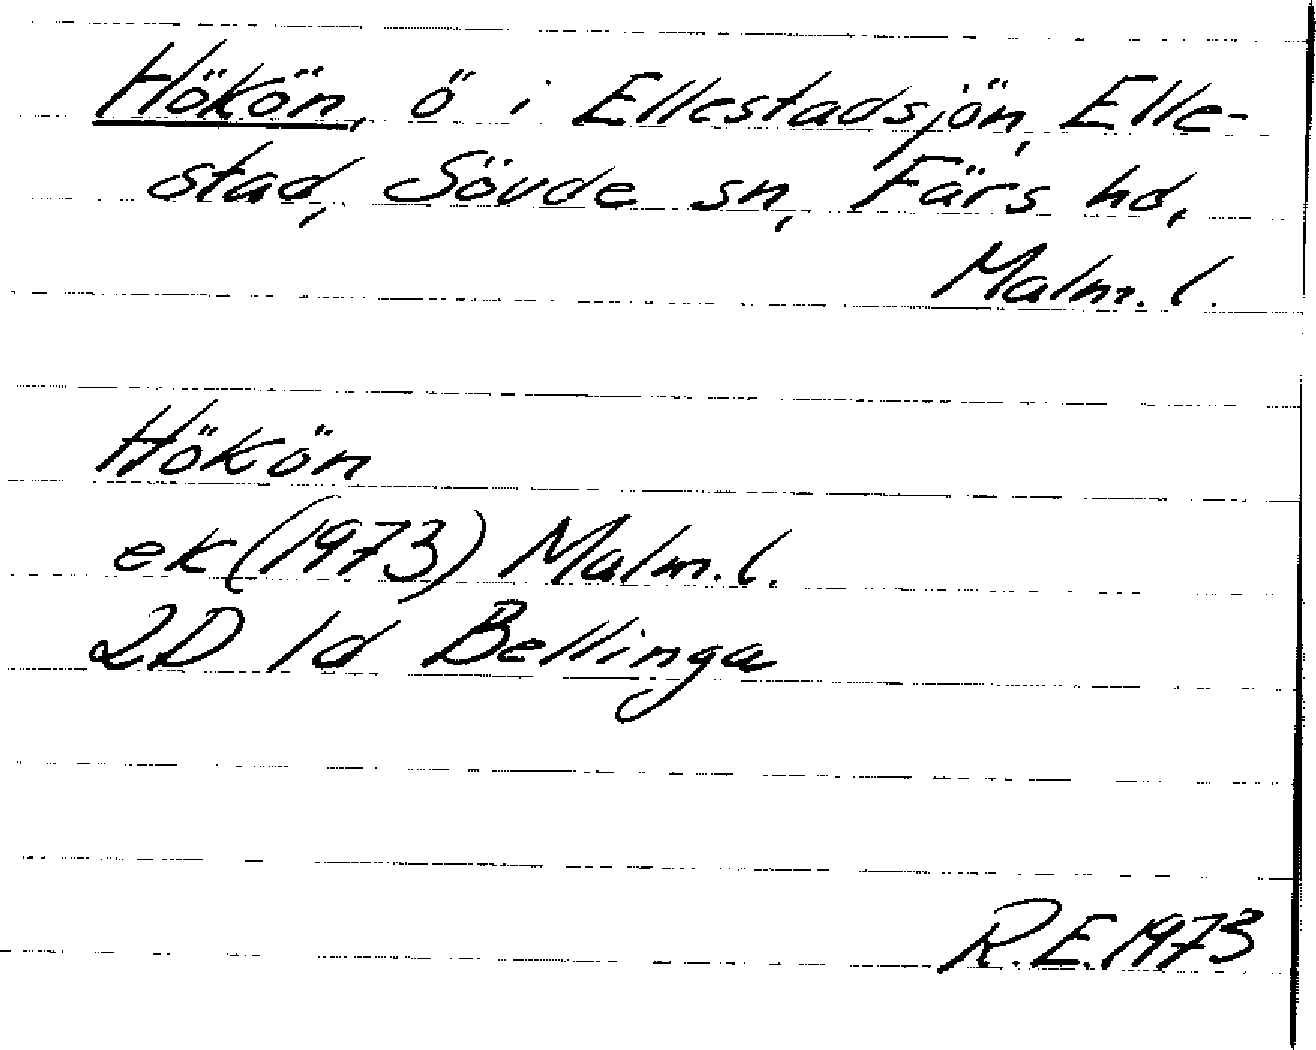 Hökön, ö i Ellestadsjön, Elle-
stad, Sövde sn, Färs hd,
Malm. l.
Hökön
ek (1973) Malm. l.
2D 1d Bellinga
R.E. 1973